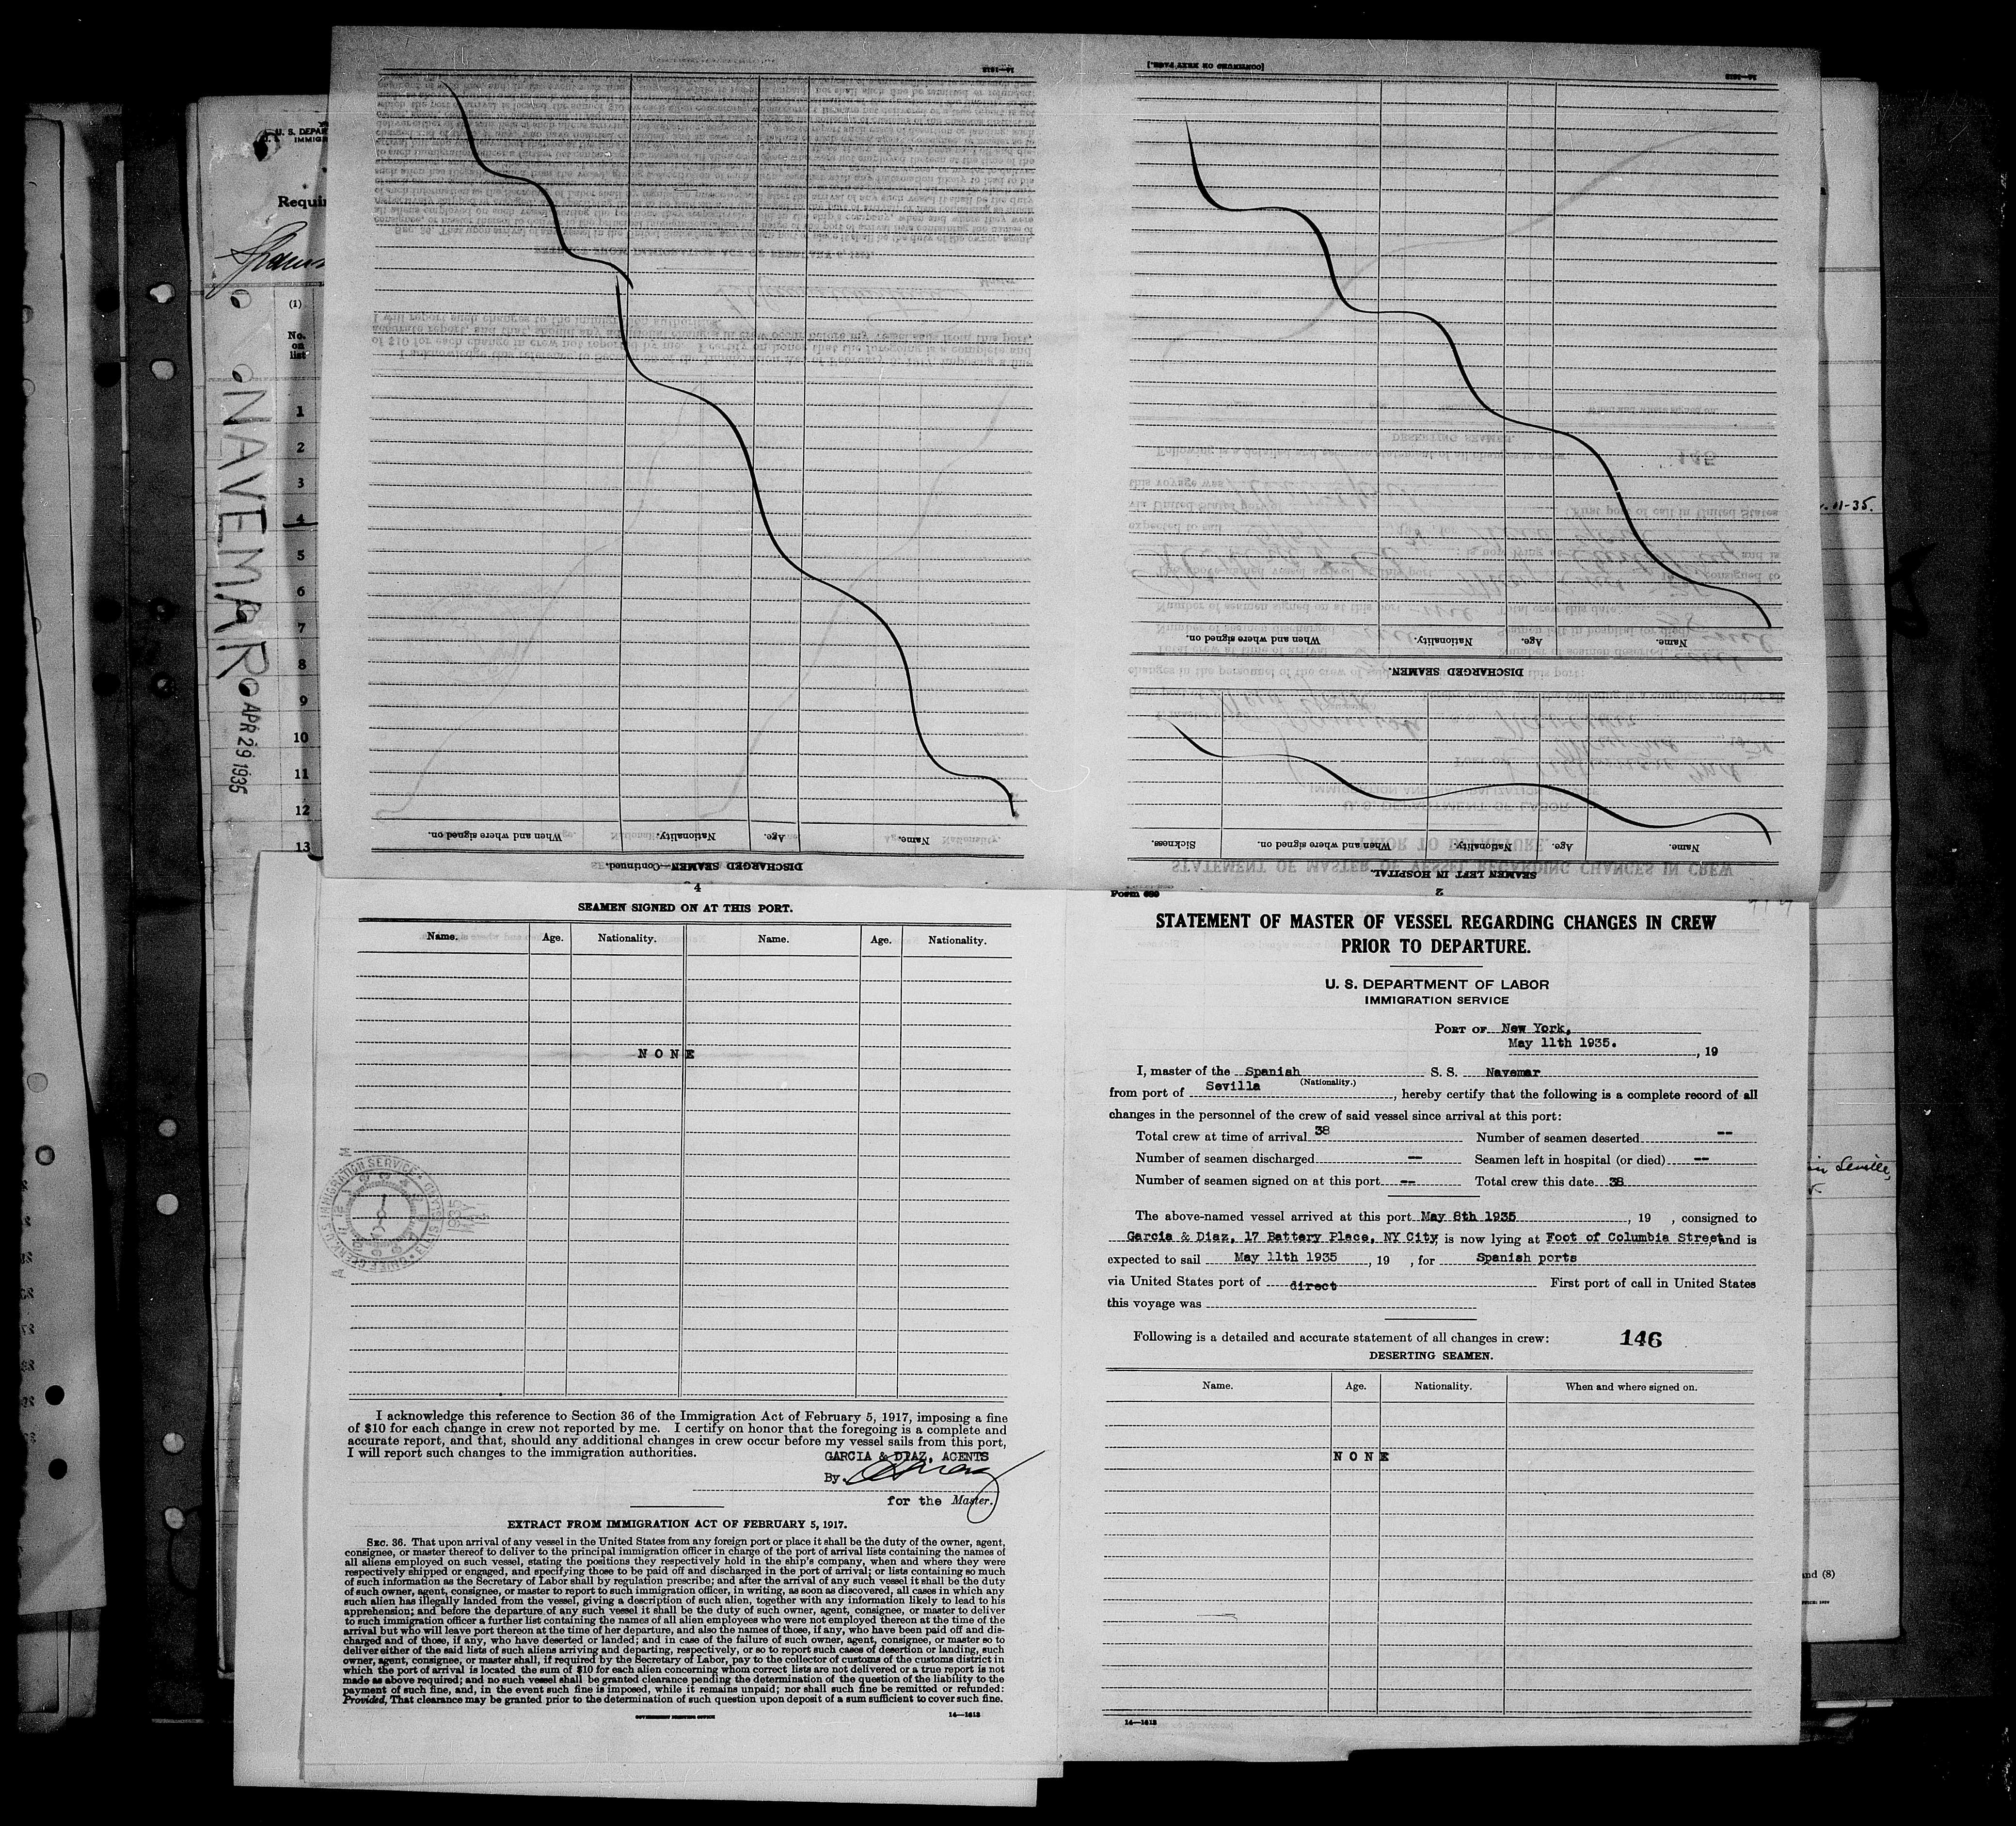 U. S. DEPAR
IMMIG
Requir
(1)
No.
on
list
1
2
3
4
5
6
7
8
9
10
11
12
13
NAVEMAR
APR 29 1935
14—1613
DISCHARGED SEAMEN—Continued.
Name. Age. Nationality. When and where signed on.
[CONTINUED ON NEXT PAGE.]
14—1613
DISCHARGED SEAMEN.
Name. Age. Nationality. When and where signed on.
SEAMEN LEFT IN HOSPITAL.
Name. Age. Nationality. When and where signed on. Sickness.
2
4
SEAMEN SIGNED ON AT THIS PORT.
Name. Age. Nationality. Name. Age. Nationality.
NONE
I acknowledge this reference to Section 36 of the Immigration Act of February 5, 1917, imposing a fine
of $10 for each change in crew not reported by me. I certify on honor that the foregoing is a complete and
accurate report, and that, should any additional changes in crew occur before my vessel sails from this port,
I will report such changes to the immigration authorities.
GARCIA & DIAZ, AGENTS
By
for the Master.
EXTRACT FROM IMMIGRATION ACT OF FEBRUARY 5, 1917.
SEC. 36. That upon arrival of any vessel in the United States from any foreign port or place it shall be the duty of the owner, agent,
consignee, or master thereof to deliver to the principal immigration officer in charge of the port of arrival lists containing the names of
all aliens employed on such vessel, stating the positions they respectively hold in the ship's company, when and where they were
respectively shipped or engaged, and specifying those to be paid off and discharged in the port of arrival; or lists containing so much
of such information as the Secretary of Labor shall by regulation prescribe; and after the arrival of any such vessel it shall be the duty
of such owner, agent, consignee, or master to report to such immigration officer, in writing, as soon as discovered, all cases in which any
such alien has illegally landed from the vessel, giving a description of such alien, together with any information likely to lead to his
apprehension; and before the departure of any such vessel it shall be the duty of such owner, agent, consignee, or master to deliver
to such immigration officer a further list containing the names of all alien employees who were not employed thereon at the time of the
arrival but who will leave port thereon at the time of her departure, and also the names of those, if any, who have been paid off and dis-
charged and of those, if any, who have deserted or landed; and in case of the failure of such owner, agent, consignee, or master so to
deliver either of the said lists of such aliens arriving and departing, respectively, or so to report such cases of desertion or landing, such
owner, agent, consignee, or master shall, if required by the Secretary of Labor, pay to the collector of customs of the customs district in
which the port of arrival is located the sum of $10 for each alien concerning whom correct lists are not delivered or a true report is not
made as above required; and no such vessel shall be granted clearance pending the determination of the question of the liability to the
payment of such fine, and, in the event such fine is imposed, while it remains unpaid; nor shall such fine be remitted or refunded:
Provided, That clearance may be granted prior to the determination of such question upon deposit of a sum sufficient to cover such fine.
GOVERNMENT PRINTING OFFICE
14—1613
Form 689
STATEMENT OF MASTER OF VESSEL REGARDING CHANGES IN CREW
PRIOR TO DEPARTURE.
U. S. DEPARTMENT OF LABOR
IMMIGRATION SERVICE
PORT OF New York,
May 11th 1935. , 19
I, master of the Spanish S. S. Navemar
(Nationality.)
from port of Sevilla , hereby certify that the following is a complete record of all
changes in the personnel of the crew of said vessel since arrival at this port:
Total crew at time of arrival 38 Number of seamen deserted --
Number of seamen discharged -- Seamen left in hospital (or died) --
Number of seamen signed on at this port -- Total crew this date 38
The above-named vessel arrived at this port May 8th 1935 , 19 , consigned to
Garcia & Diaz, 17 Battery Place, NY City is now lying at Foot of Columbia Street, and is
expected to sail May 11th 1935 , 19 , for Spanish ports
via United States port of direct First port of call in United States
this voyage was
Following is a detailed and accurate statement of all changes in crew: 146
DESERTING SEAMEN.
Name. Age. Nationality. When and where signed on.
NONE
14—1613
11-35.
in Seville,
and (8)